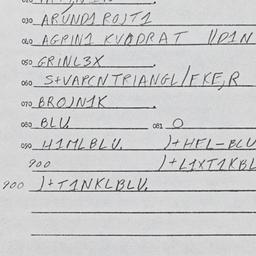 030 ARUND1 ROJT1
040 AGRIN1 KVADRAT
050 GRINL3X
060 S+VAPCNTRIANGL/FKE,R
070 BROJN1K
080 BLU. 081 O
090 H1MLBLU. )+HFL-BLU
900 )+L1XT1KBL
900 )+T1NKLBLU.